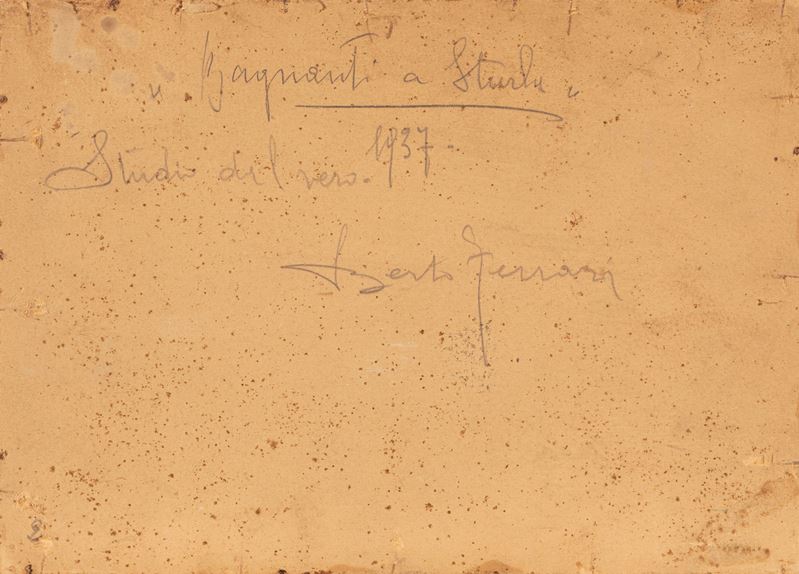 „ Bagnanti a Sturla „
Studio dal vero. 1937.
Berto Ferrari
2